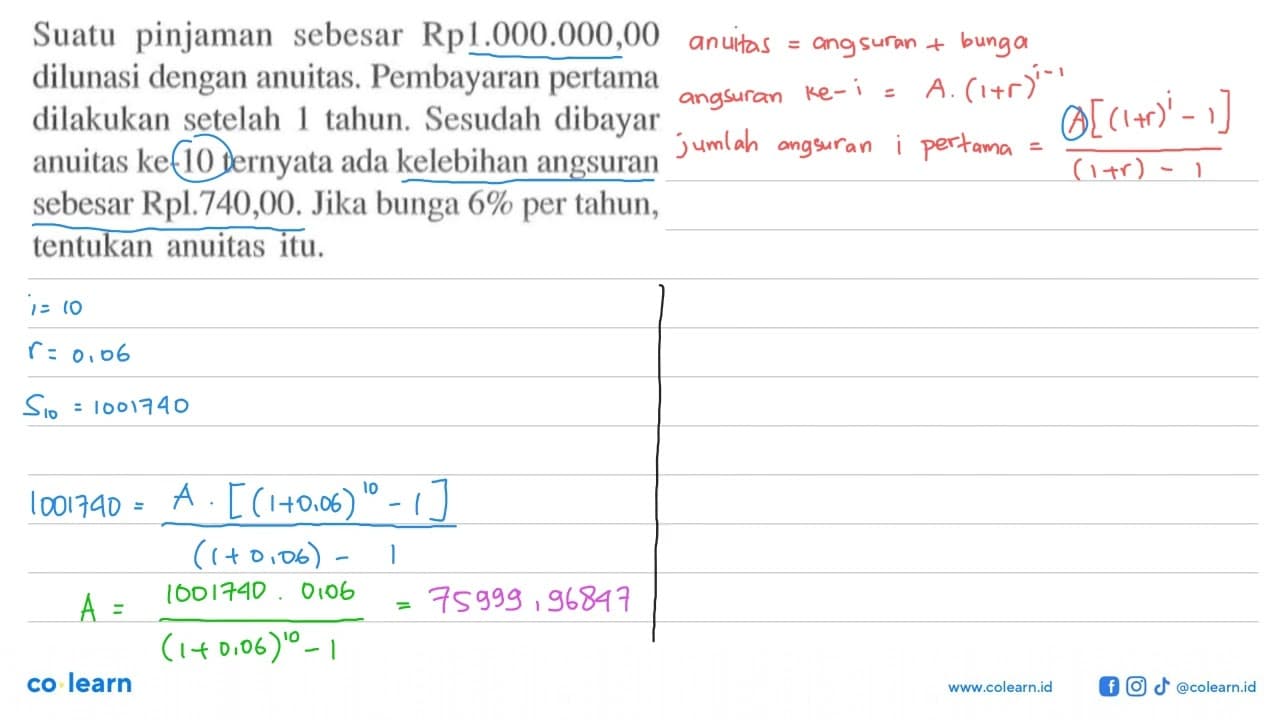 Suatu pinjaman sebesar Rp1.000.000,00
dilunasi dengan anuitas. Pembayaran pertama
dilakukan setelah 1 tahun. Sesudah dibayar
anuitas ke-10 ternyata ada kelebihan angsuran
sebesar Rpl.740,00. Jika bunga 6% per tahun,
tentukan anuitas itu.
anuitas = angsuran + bunga
angsuran ke-i = A.(1+r)^i-1
jumlah angsuran i pertama = A[(1+r)^i - 1]
(1+r) - 1
i = 10
r = 0,06
S10 = 1001740
1001740 = A . [(1+0,06)^10 - 1]
(1+0,06) - 1
A = 1001740 . 0,06 = 75999,96847
(1+0,06)^10 - 1
co learn
www.colearn.id
@colearn.id